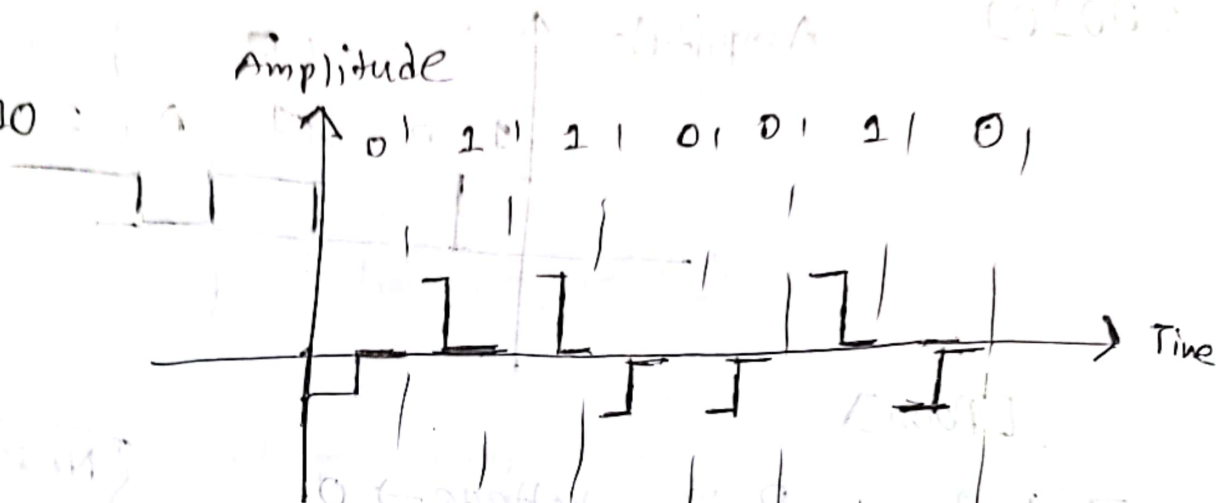 Amplitude
10 :
0 1 1 0 0 1 0
Time